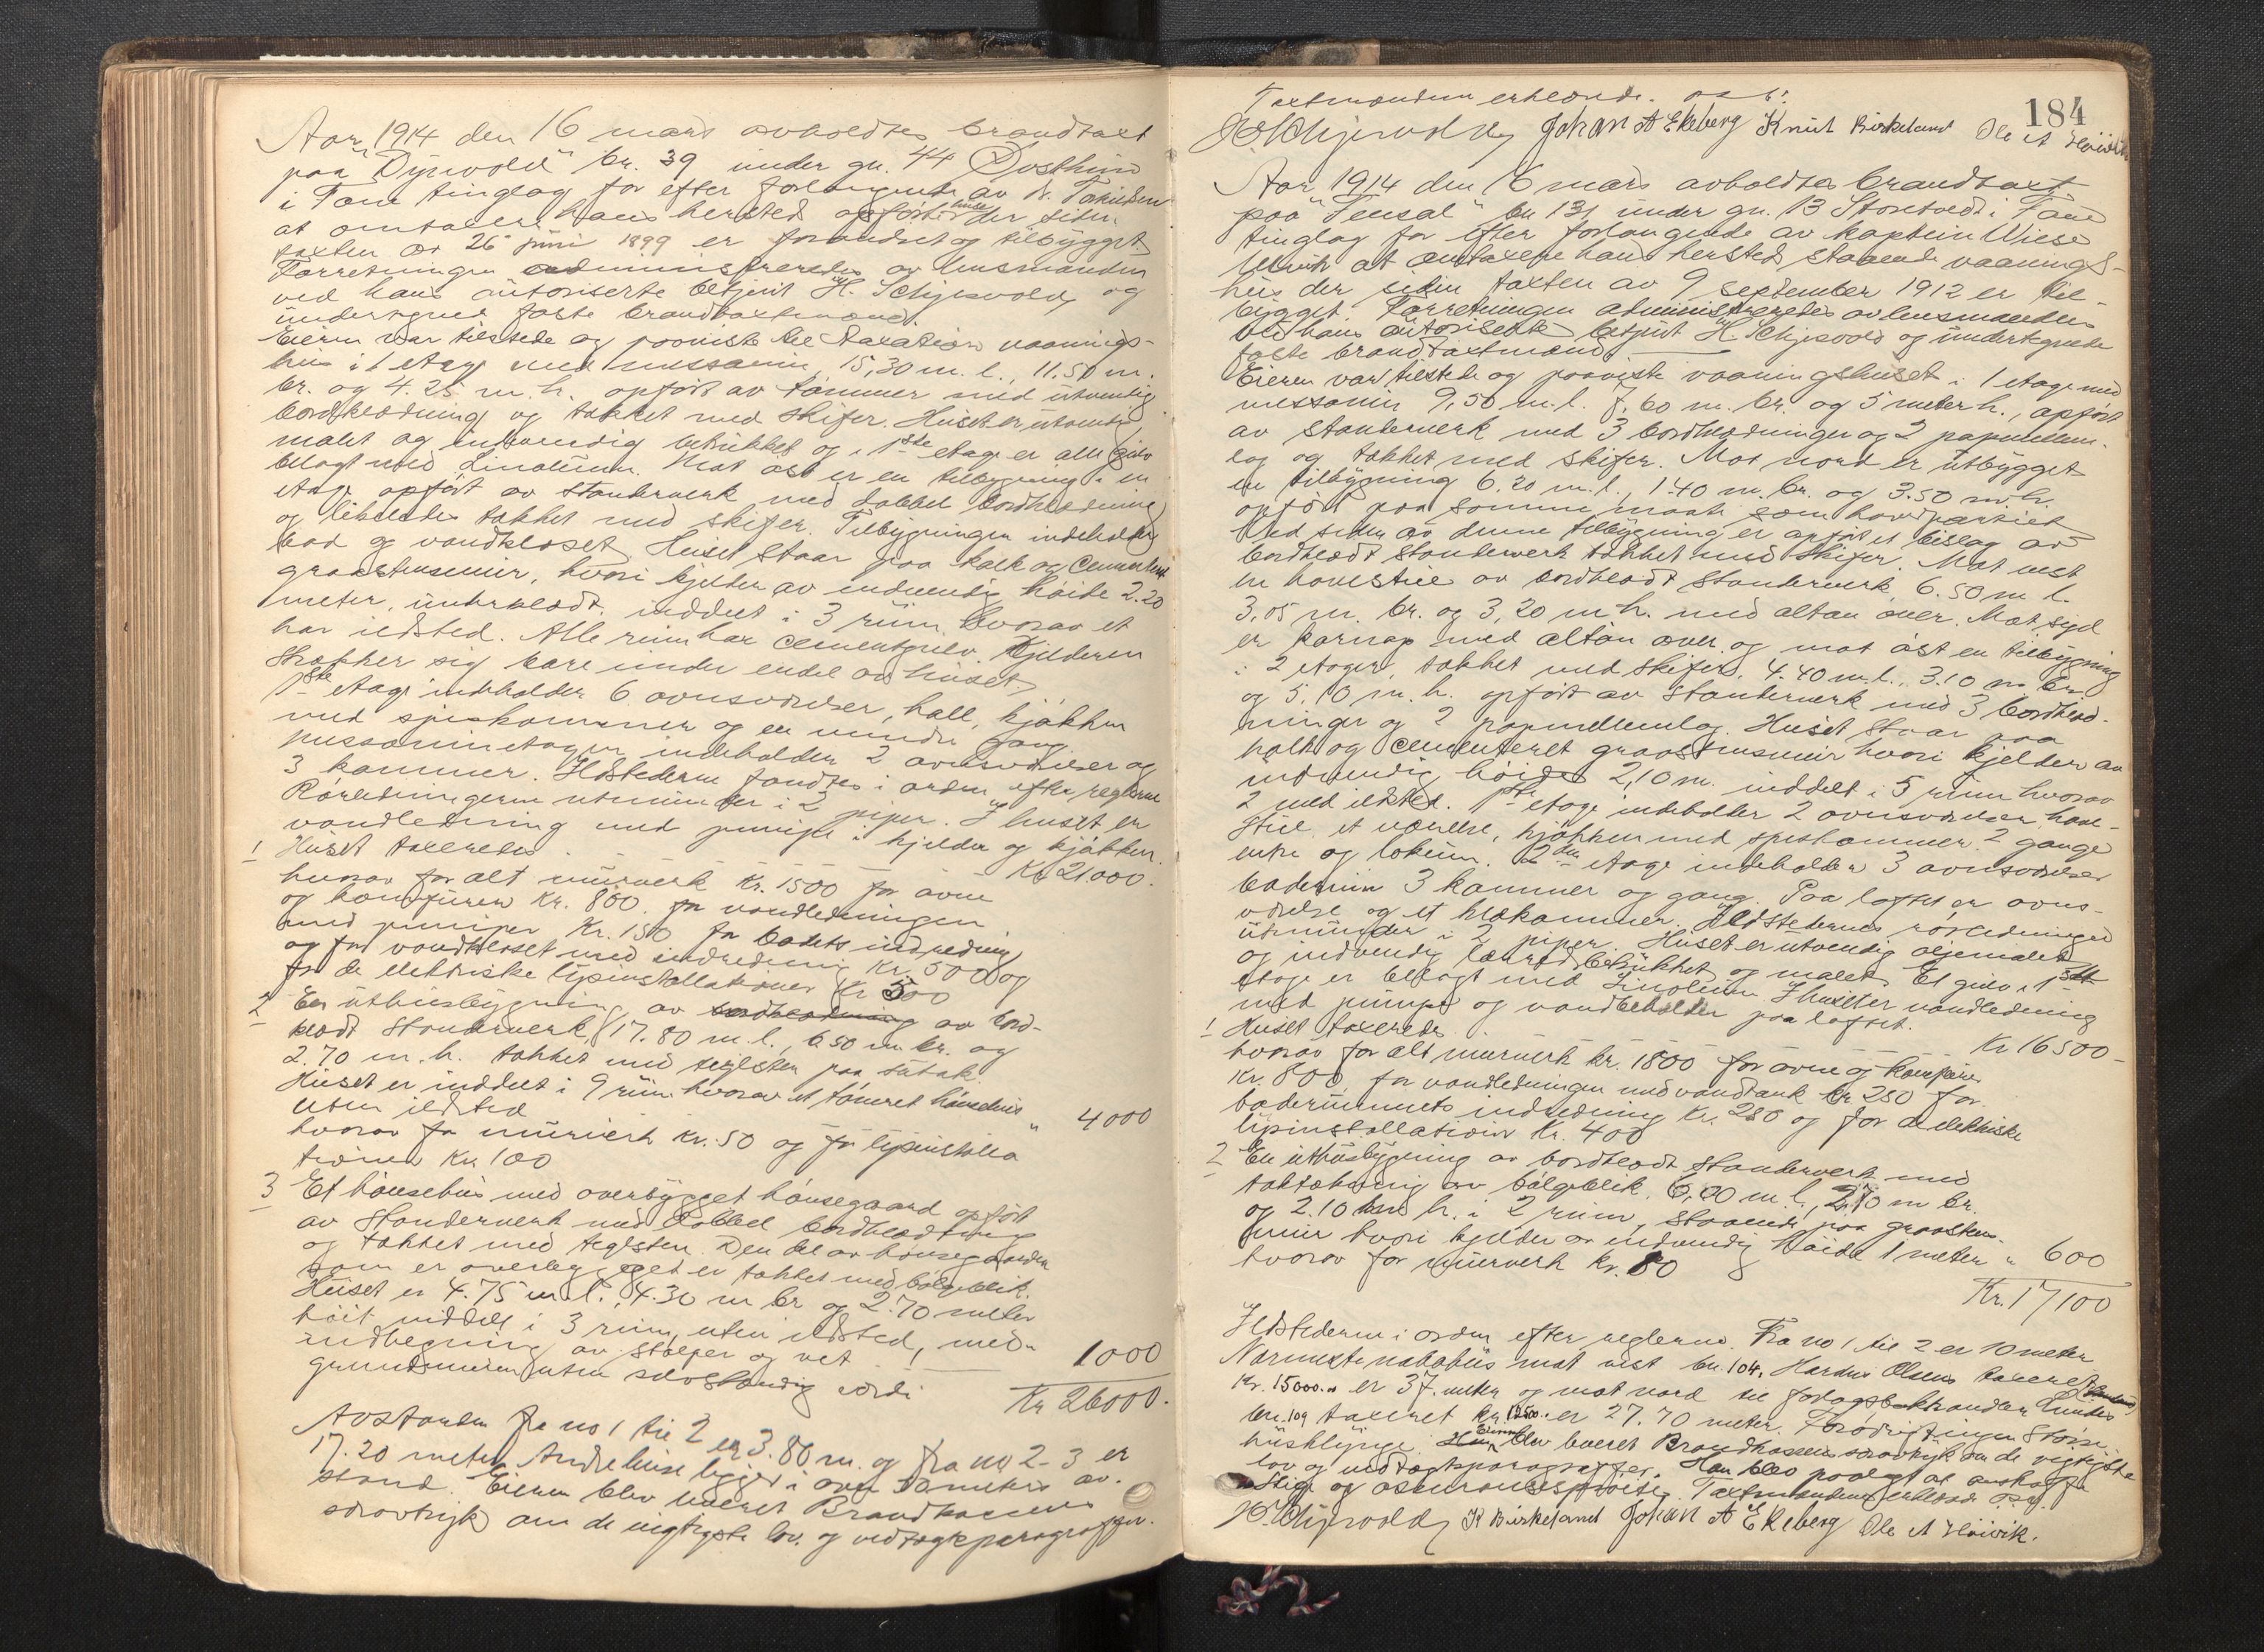 Aar 1914 den 16 mars avholdtes brandtaxt
paa "Dyrvold" br. 39 under gn. 44
i Fane tinglag for efter forlangende av
at omtaxere hans hersteds opførte huse der siden
taxten av 26 juni 1899 er forandret og tilbygget
Forretningen administreredes av lensmanden
ved hans autoriserte betjent H. Schjesvold og
undertegnede faste brandtaxtmænd.
Eieren var tilstede og paaviste til taxation vaanings-
hus i 1 etage med messanin 15,30 m. l., 11.50 m.
br. og 4.25 m. h. opført av tømmer med utvendig
bordklædning og tækket med skifer. Huset er utvendig
malet og indvendig betrukket og i 1ste etage er alle gulv
belagt med Linoleum. Mot øst er en tilbygning i en
etage opført av standerverk med dobbel bordklædning
og tækket med skifer. Tilbygningen indeholder
bad og vandkloset. Huset staar paa kalk og Cementert
graastensmur, hvori kjelder av indvendig høide 2.20
meter, underklædt, inddelt i 3 rum hvorav et
har ildsted. Alle rum har cementgulv. Kjelderen
strækker sig bare under endel av huset.
1ste etage indeholder 6 ovnsværelser, hall, kjøkken
med spiskammer og en mindre gang.
messaninetagen indeholder 2 ovnsværelser og
3 kammer. Ildstederne fandtes i orden efter reglerne
Rørledningerne utmunder i 2 piper. I huset er
vandledning med pumpe i kjelder og kjøkken.
1 Huset taxeredes - - - Kr 21000.
hvorav for alt murverk Kr. 1500 for ovne
og komfurer Kr. 800. for vandledningen
med pumper Kr. 150 for badets indredning
og for vandkloset med indredning Kr. 500 og
for de elektriske lysinstallationer Kr 500
2 En uthusbygning av bordklædning av bord-
klædt standerverk, 17.80 m. l., 6.50 m. br. og
2.70 m. h. tækket med teglsten paa sutak.
Huset er inddelt i 9 rum hvorav et tømret hønsehus
uten ildsted " 4000
hvorav for murverk kr. 50 og for lysinstalla
tionen Kr 100
3 Et hønsehus med overbygget hønsegaard opført
av standerverk med dobbel bordklædning
og tækket med teglsten. Den del av hønsegaarden
som er overbygget er tækket med bølgeblik.
Huset er 4.75 m l., 4.30 m br og 2.70 meter
høit inddelt i 3 rum, uten ildsted, med
indhegning av stolper og net " 1000
grundmuren uten selvstændig værdi
Kr 26000.
Avstanden fra no 1 til 2 er 3.80 m. og fra no 2-3 er
17.20 meter. Andre huse ligger i over 10 meters av-
stand. Eieren blev leveret Brandkassens
særtryk om de vigtigste lov. og vedtægtsparagraffer.
184
Taxtmændene erklærede. o s v.
H Schjesvold Johan A Ekeberg Knut Birkeland Ole A Høivik
Aar 1914 den 16 mars avholdtes brandtaxt
paa "Fensal" bn 131 under gn. 13 Storetvedt i Fane
tinglag for efter forlangende av kaptein Wiese
at omtaxere hans hersteds staaende vaanings-
hus der siden taxten av 9 september 1912 er til-
bygget. Forretningen administreredes av lensmanden
ved hans autoriserte betjent H. Schjesvold og undertegnede
faste brandtaxtmænd.
Eieren var tilstede og paaviste vaaningshuset i 1 etage med
messanin 9,50 m. l. 7,60 m. br. og 5 meter h., opført
av standerverk med 3 bordklædninger og 2 papmellem-
lag og tækket med skifer. Mot nord er utbygget
en tilbygning 6.20 m. l., 1.40 m. br. og 3.50 m. h.
opført paa samme maate som hovedpartiet
Ved siden av denne tilbygning er opført et bislag av
bordklædt standerverk tækket med skifer. Mot vest
en havestue av bordklædt standerverk, 6.50 m. l.
3,05 m. br. og 3,20 m h. med altan over. Mot syd
er karnap med altan over og mot øst en tilbygning
i 2 etager, tækket med skifer, 4.40 m. l., 3.10 m br.
og 5,10 m. h. opført av standerverk med 3 bordklæd-
ninger og 2 papmellemlag. Huset staar paa
kalk og cementeret graastensmur hvori kjelder av
indvendig høide 2,10 m. inddelt i 5 rum hvorav
2 med ildsted. 1ste etage indeholder 2 ovnsværelser, have-
stue, et værelse, kjøkken med spiskammer, 2 gange
entre og lokum. 2den etage indeholder 3 ovnsværelser
baderum 3 kammer og gang. Paa loftet er ovns-
værelse og et klækammer. Ildstedernes rørledninger
utmunder i 2 piper. Huset er utvendig oljemalet
og indvendig betrukket og malet. Et gulv i 1ste
etage er belagt med Linoleum. I huset er vandledning
med pumpe og vandbeholder paa loftet.
1 Huset taxeredes . . . . Kr 16500 -
hvorav for alt murverk kr. 1800 for ovne og komfurer
Kr. 800, for vandledningen med vandtank kr 250 for
baderummets indredning Kr. 250 og for de elektriske
lysinstallationer Kr. 400
2 En uthusbygning av bordklædt standerverk med
taktækning av bølgeblik. 6,00 m. l., 2,70 m br.
og 2.10 m h. i 2 rum, staaende paa graastens-
mur hvori kjelder av indvendig høide 1 meter " 600
hvorav for murverk kr. 80
Kr. 17100
Ildstederne i orden efter reglerne. Fra no 1 til 2 er 10 meter
Nærmeste nabohus mot vest bn. 104, Olsens taxeret
Kr. 15000.- er 37. meter og mot nord til forlagsboklhandler Lundes
bn. 109 taxeret kr 12500.- er 27.70 meter.
husklynge. Eieren blev leveret Brandkassens særtryk om de vigtigste
lov og vedtægtsparagraffer. Han blev paalagt at anskaffe
stige og assurancesprøite. Taxtmændene erklærede osv.
H Schjesvold K Birkeland Johan A Ekeberg Ole A Høivik.